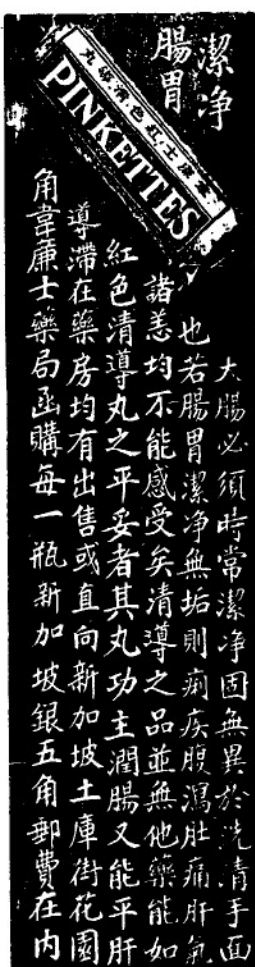 潔净
腸胃
丸導清色紅士廉韋
PINKETTES
大腸必須時常潔净固無異於洗清手面
也若腸胃潔净無垢則痢疾腹瀉肚痛肝氣
諸恙均不能感受矣清導之品並無他藥能如
紅色清導丸之平妥者其丸功主潤腸又能平肝
導滯在藥房均有出售或直向新加坡土庫街花園
角韋廉士藥局函購每一瓶新加坡銀五角郵費在内